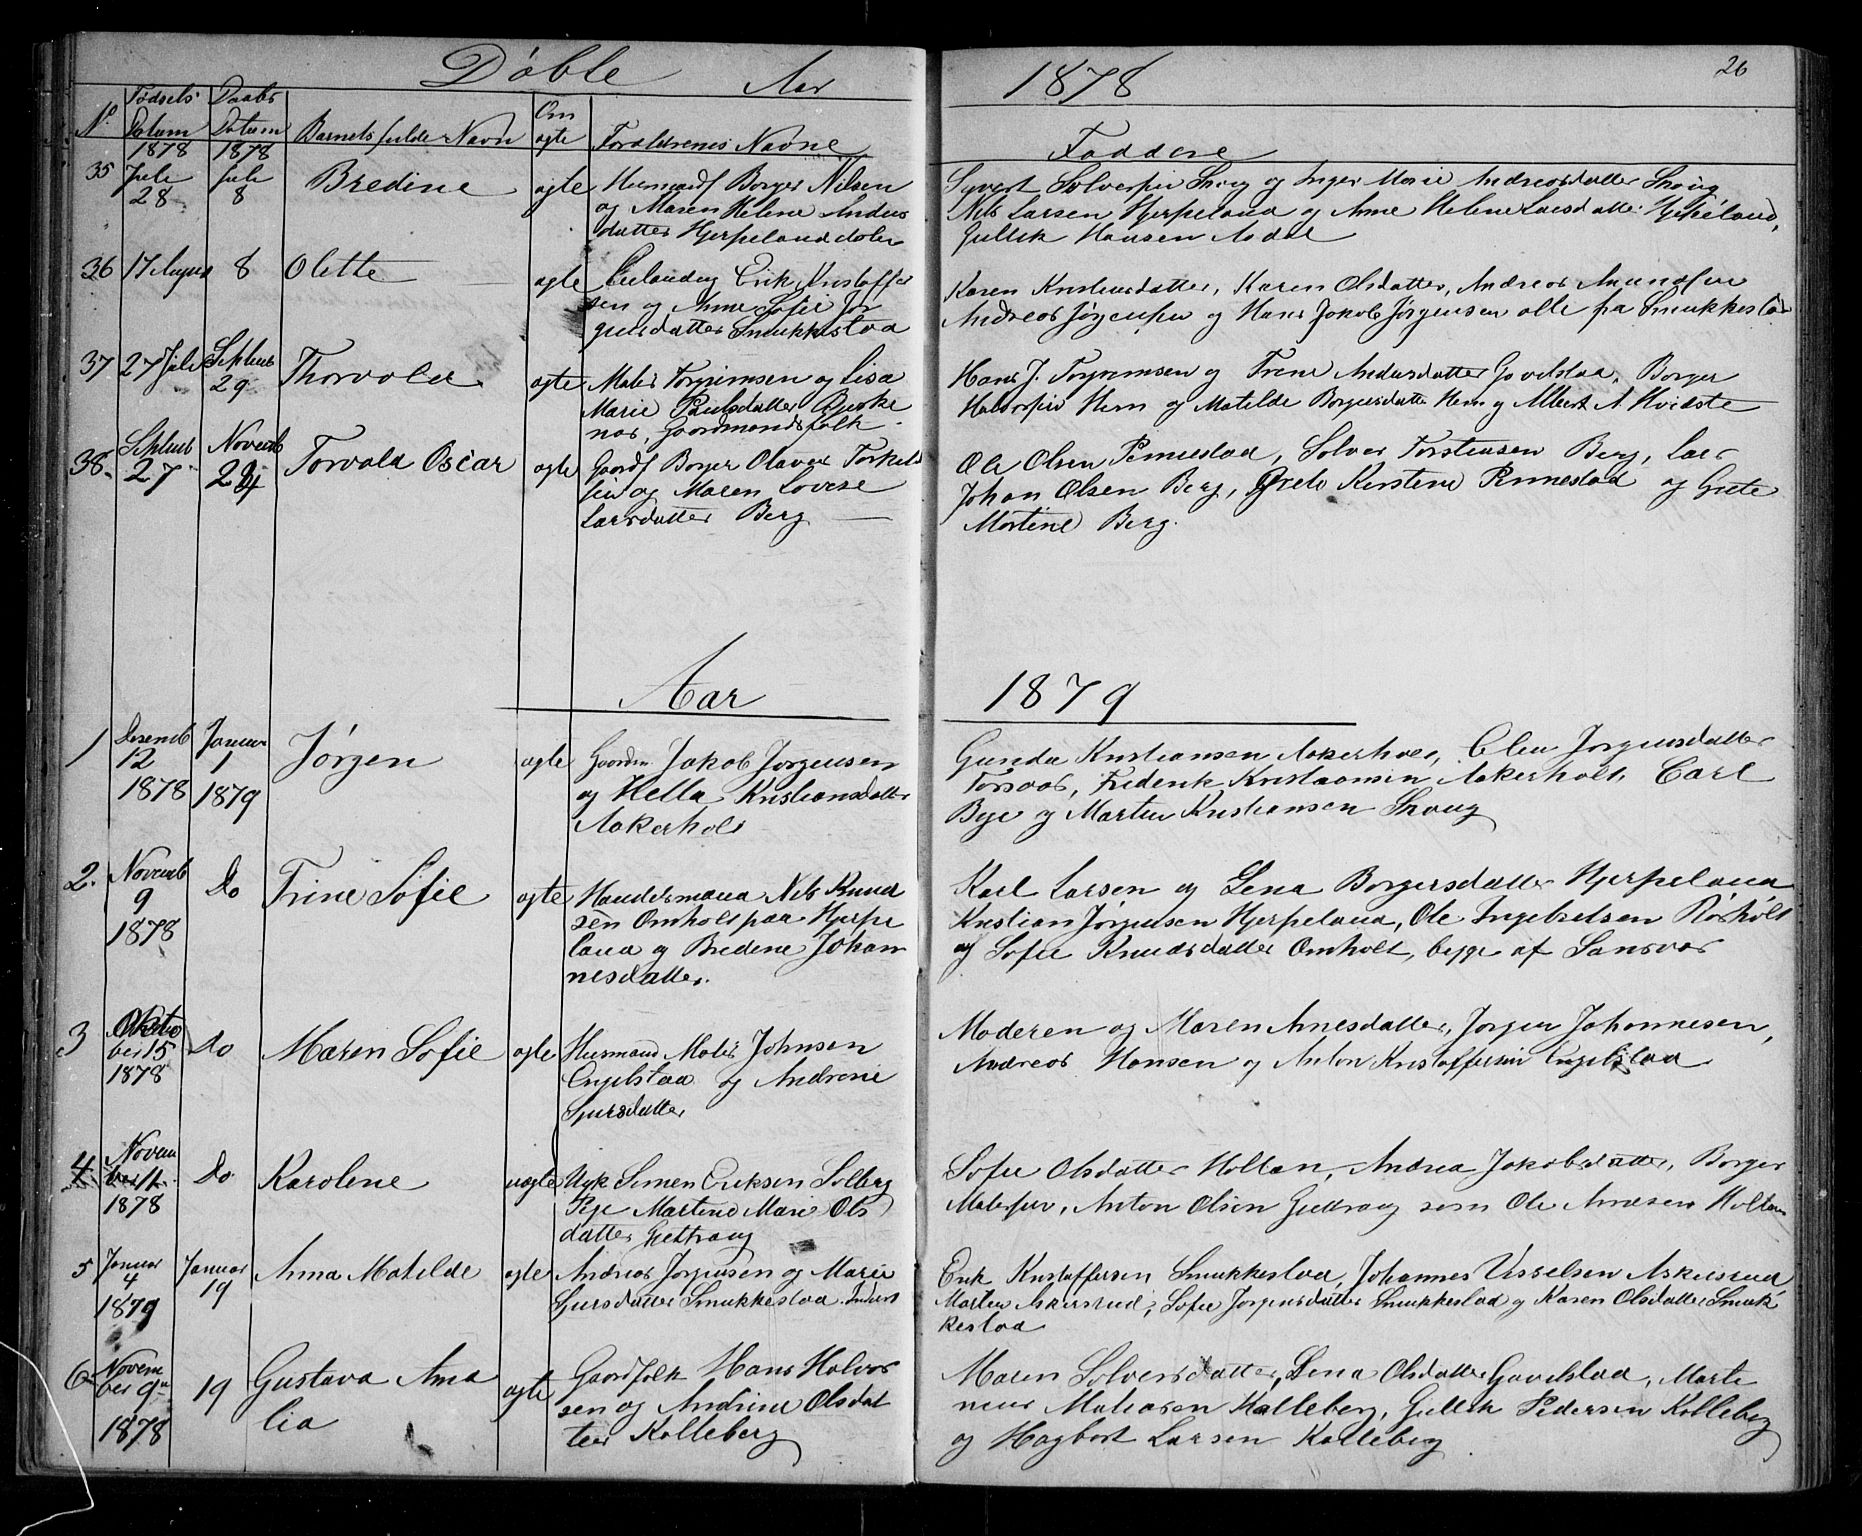 Døbte Aar 1878 26
No Fødsels Datum Daabs Datum Barnets fulde Navn Om ægte Forældrenes Navne Faddere
1878 1878
35 Juli 28 Juli 8 Bredine ægte Husmandf Borger Nilsen
og Maren Helene Anders
datter Hjerpelanddalen
Syvert Solversen Skoug og Inger Marie Andreasdatter Skoug
Nils Larsen Hjerpeland og Anne Helene Larsdatter Hjerpeland,
Gullik Hansen Aadal
36 17 August 8 Olette ægte Erik Kristoffer
sen og Anne Sofie Jør
gensdatter Smukkestad
Karen Kristiansdatter, Karen Olsdatter, Andreas Amundsen
Andreas Jørgensen og Hans Jakob Jørgensen alle fra Smukkestad
37 27 Juli Septemb 29 Thorvald ægte Mater Torgrimsen og Lisa
Marie Paulsdatter Bjerke
nas, Gaardmandsfolk
Hans J. Torgrimsen og Trine Andersdatter Gavelstad, Borger
Halvorsen Hem og Matilde Borgersdatter Hem og Albert A. Hvidste
38 Septemb 27 Novemb 24 Torvald Oscar ægte Gaardf Borger Olaves Torkels
sen og Maren Lovise
Larsdatter Berg
Ole Olsen Rennestad, Solver Torstensen Berg, Lars
Johan Olsen Berg, Grete Kirstine Rennestad og Grete
Martine Berg.
Aar 1879
1 Desemb 12 1878 Januar 1 1879 Jørgen ægte Gaardm Jakob Jørgensen
og Hella Kristiansdatter
Aakerholt
Gunda Kristiansen Aakerholt, Elen Jørgensdatter
Torsvar, Frederik Kristiansen Aakerholt, Carl
Bye og Martin Kristiansen Skoug
2. Novemb 9 1878 Do Trine Sofie ægte Handelsmand Nils Knud
sen Omholt paa Hjerpe
land og Bredine Johan
nesdatter.
Karl Larsen og Lena Borgersdatter Hjerpeland
Kristian Jørgensen Hjerpeland, Ole Ingebretsen Rørholt
og Sofie Knudsdatter Omholt, begge af Sansvær
3 Okto ber 15 1878 Do Maren Sofie ægte Husmand Mater Johnsen
Engelstad og Andrene
Sjursdatter
Moderen og Maren Arnesdatter, Jørgen Johannesen,
Andreas Hansen og Anton Kristoffersen Engelstad
4 Novem ber 11 1878 Do Karolene uægte Ugk Simen Eriksen Solberg
Pige Martine Marie Ols
datter Guttraug
Sofie Olsdatter Holtan, Andrea Jakobsdatter, Borger
Matersen, Anton Olsen Guttraug som Ole Andersen Holtan
5 Januar 4 1879 Januar 19 Anna Matilde ægte Andreas Jørgensen og Marie
Sjursdatter Smukkestad
Erik Kristoffersen Smukkestad, Johannes Usselsen Askerstad
Martin Askerstad, Sofie Jørgensdatter Smukkestad og Karen Olsdatter Smuk
kestad
6 Novem ber 9 1878 19 Gustava Ama
lia ægte Gaardfolk Hans Halvor
sen og Andrine Olsdat
ter Kolleberg
Maren Solversdatter, Lena Olsdatter Gavelstad, Marti
nius Matiasen Kolleberg, Gullik Pedersen Kolleberg
og Hagbart Larsen Kolleberg